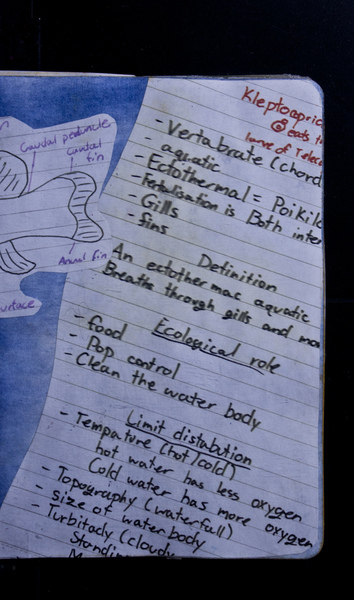 Caudal peduncle
Caudal
fin
Kleptoparic
eats th
larve of
- Vertabrate (chord
- aquatic
- Ectothermal = Poikilo
- Fertalisation is Both inter
- Gills
- Fins
Definition
An ectothermac aquatic
Breathe through gills and mo
Ecological role
- food
- Pop control
- Clean the water body
Limit distabution
- Tempature (hot/cold)
hot water has less oxygen
Cold water has more oxygen
- Topography (waterfall)
- size of water body
- Turbitady (cloudy
Standin